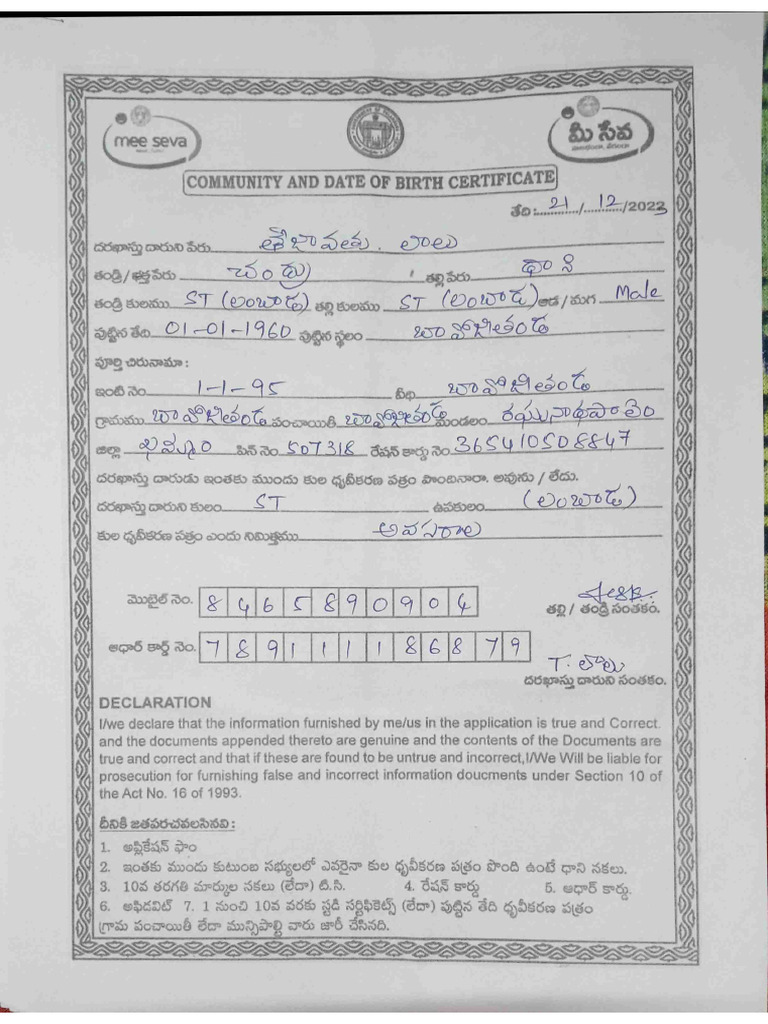 mee seva
మీ సేవ
COMMUNITY AND DATE OF BIRTH CERTIFICATE
తేది:21/12/2023
దరఖాస్తు దారుని పేరు తేజావతు. లాలు
తండ్రి / భర్త పేరు చంద్రు తల్లి పేరు ధాని
తండ్రి కులము ST (లంబాడ) తల్లి కులము ST (లంబాడ) ఆడ / మగ Male
పుట్టిన తేది 01-01-1960 పుట్టిన స్థలం బావోజితండ
పూర్తి చిరునామా :
ఇంటి నెం. 1-1-95 వీధి బావోజితండ
గ్రామము బావోజితండ పంచాయితీ బావోజితండ మండలం రఘునాథపాలెం
జిల్లా ఖమ్మం పిన్ నెం. 507318 రేషన్ కార్డు నెం. 365410508847
దరఖాస్తు దారుడు ఇంతకు ముందు కుల ధృవీకరణ పత్రం పొందినారా. అవును / లేదు.
దరఖాస్తు దారుని కులం ST ఉపకులం (లంబాడ)
కుల ధృవీకరణ పత్రం ఎందు నిమిత్తము అవసరాల
మొబైల్ నెం. 8465890904
తల్లి / తండ్రి సంతకం.
ఆధార్ కార్డ్ నెం. 789111186879
T. లాలు
దరఖాస్తు దారుని సంతకం.
DECLARATION
I/we declare that the information furnished by me/us in the application is true and Correct.
and the documents appended thereto are genuine and the contents of the Documents are
true and correct and that if these are found to be untrue and incorrect,I/We Will be liable for
prosecution for furnishing false and incorrect information doucments under Section 10 of
the Act No. 16 of 1993.
దీనికి జతపరచవలసినవి :
1. అప్లికేషన్ ఫాం
2. ఇంతకు ముందు కుటుంబ సభ్యులలో ఎవరైనా కుల ధృవీకరణ పత్రం పొంది ఉంటే ధాని నకలు.
3. 10వ తరగతి మార్కుల నకలు (లేదా) టి.సి. 4. రేషన్ కార్డు 5. ఆధార్ కార్డు.
6. అఫిడవిట్ 7. 1 నుంచి 10వ వరకు స్టడి సర్టిఫికెట్స్ (లేదా) పుట్టిన తేది ధృవీకరణ పత్రం
గ్రామ పంచాయితీ లేదా మున్సిపాల్టి వారు జారీ చేసినది.